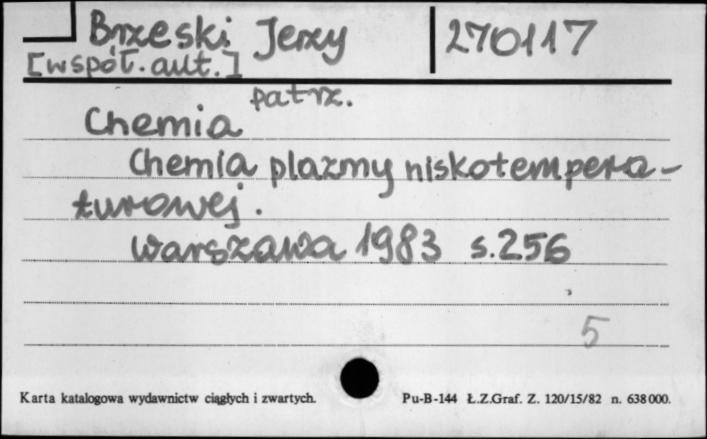 Brzeski Jerzy 270117
[współ. aut.]
patrz.
Chemia
Chemia plazmy niskotempera-
turowej.
Warszawa 1983 s. 256
5
Karta katalogowa wydawnictw ciągłych i zwartych. Pu-B-144 Ł.Z.Graf. Z. 120/15/82 n. 638000.